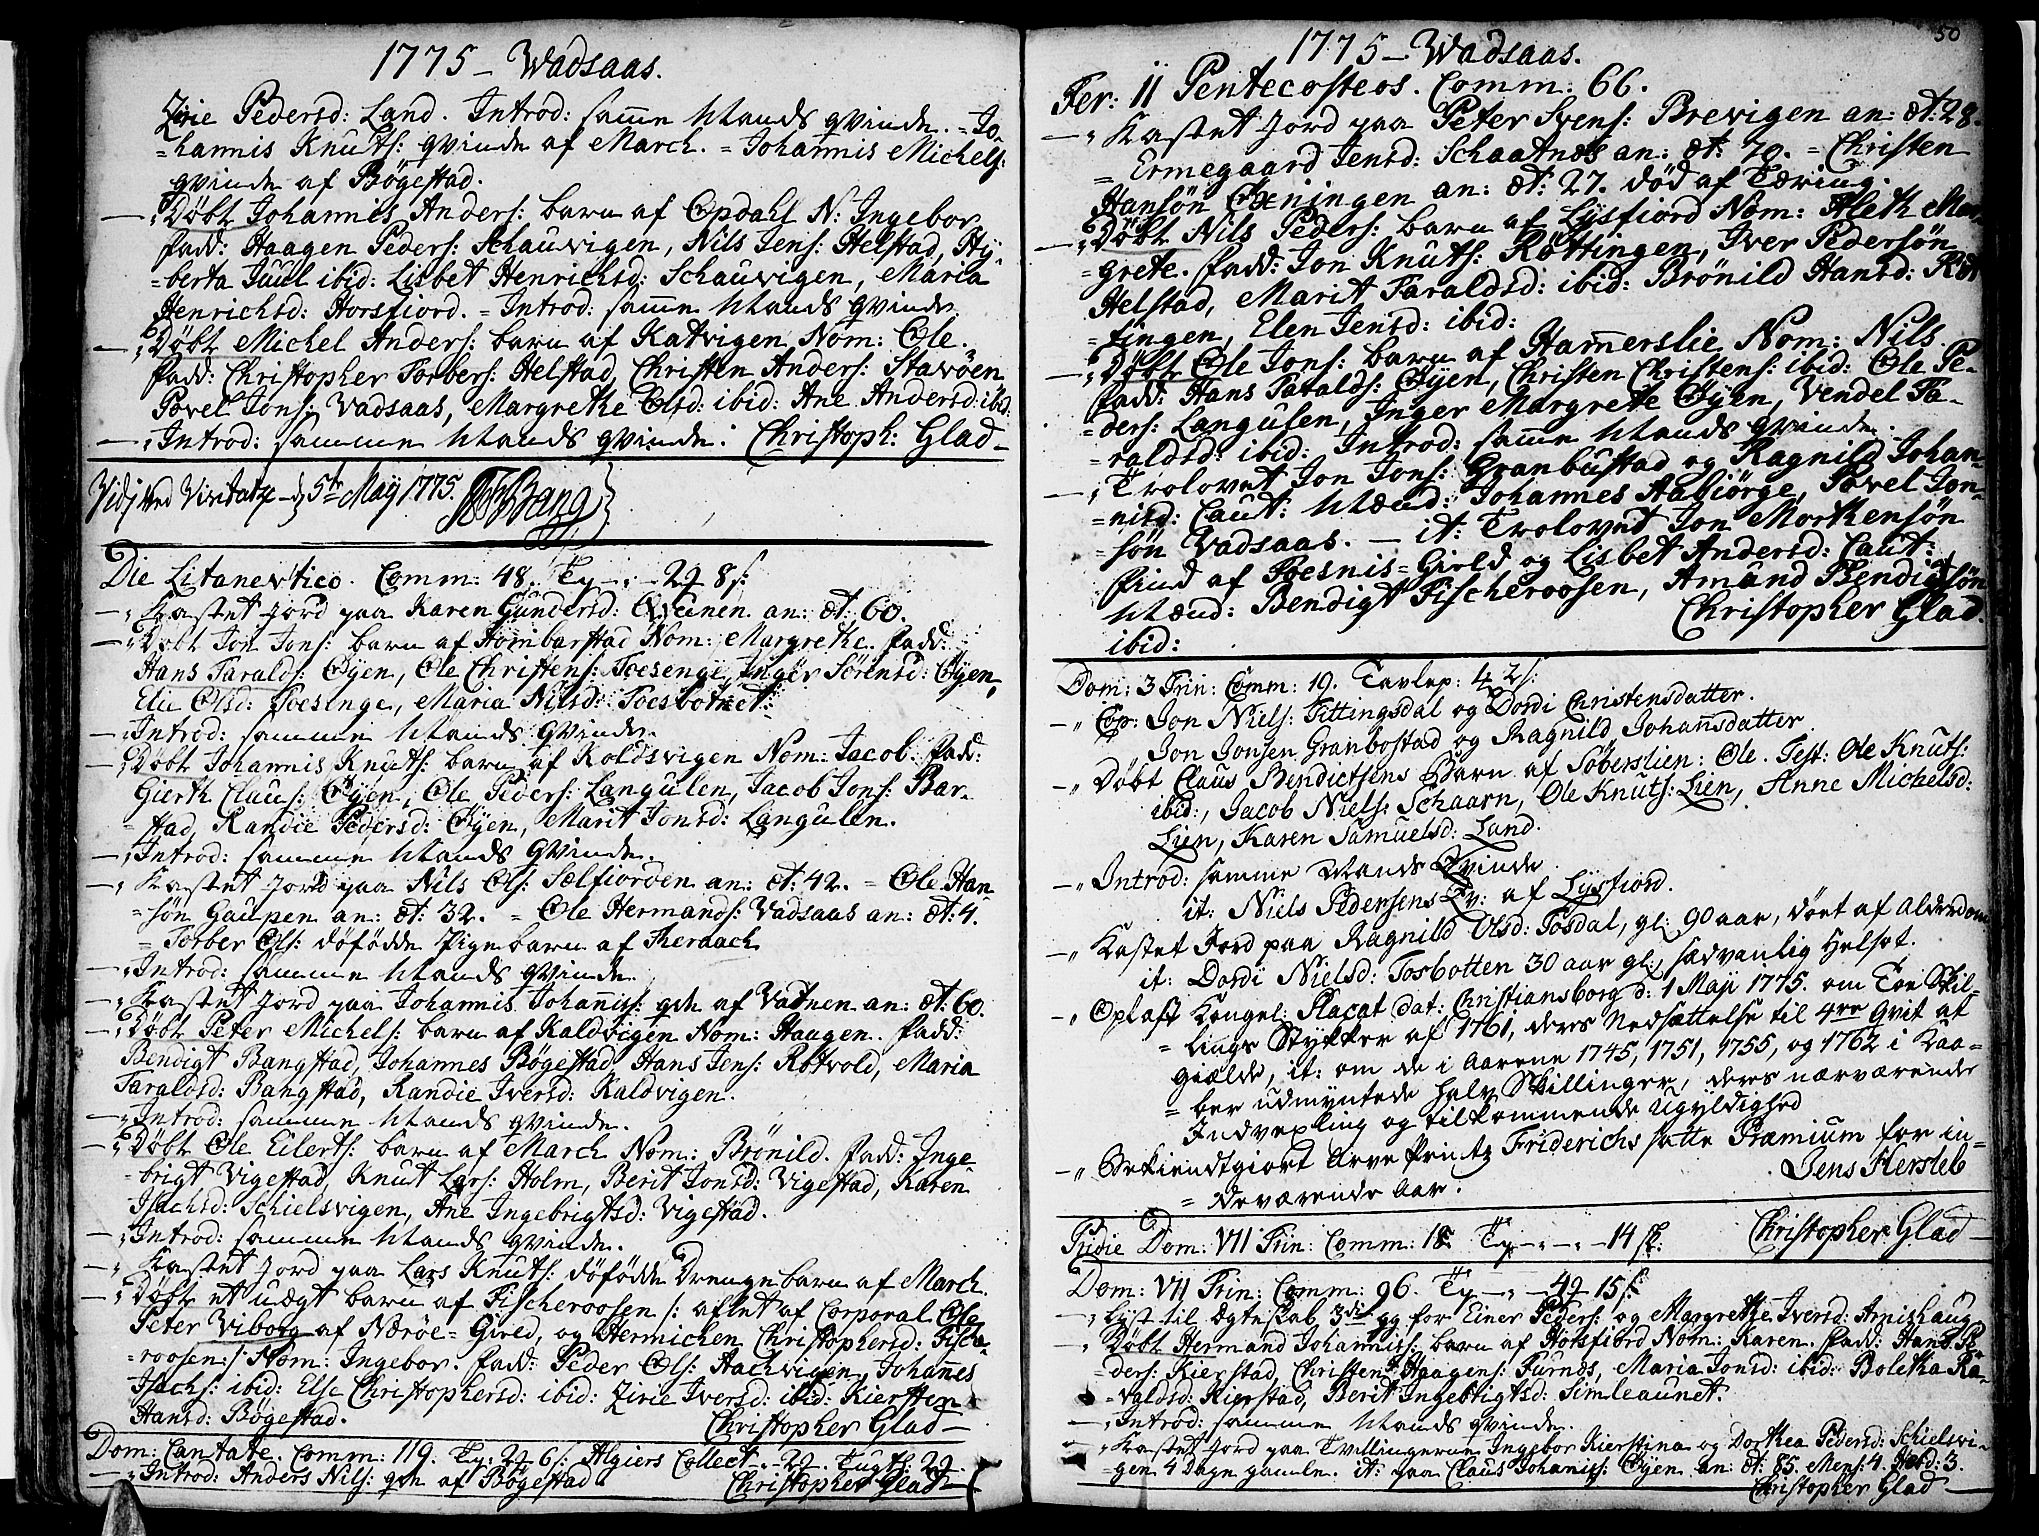 1775 – Wadsaas.
Zirie Pedersd: Land. Introd: samme Mands qvinde. = Jo-
=hannis Knuts: qvinde af March. = Johannis Michels:
qvinde af Bögestad.
—„ Döbt Johannis Anders: barn af Opdahl N: Ingebor
fadd: Haagen Peders: Schauvigen, Nils Jens: Helstad, Hÿ-
=berta Juul ibid: Lisbet Henrichsd: Schauvigen, Maria
Henrichsd: Horsfiord. = Introd: samme Mands qvinde
—„ Döbt Michel Anders: barn af Katvigen Nom: Ole.
fadd: Christopher Torbers: Helstad, Christen Anders: Stavöen
Povel Jons: Vadsaas, Margrethe Olsd: ibid: Ane Andersd: ibid:
—„ Introd: samme Mands qvinde. Christoph: Glad –
Vidj ved Visitatz – d 5te Maÿ 1775. Bang
Die Litanevtico. Comm: 48. Ty — 2 8 s:
—„ Kastet Jord paa Karen Gundersd: Qveinen an: æt: 60.
—„ Döbt Jon Jons: barn af Hombarstad Nom: Margrethe. fadd:
Hans Taralds: Öÿen, Ole Christens: Toesenge, Inger Sörensd: Öÿen,
Elie Olsd: Toesenge, Maria Nilsd: Toesbotnet.
—„ Introd: samme Mands qvinde.
—„ Döbt Johannis Knuts: barn af Koldsvigen Nom: Jacob. fadd:
Gierth Claus: Öÿen, Ole Peders: Langulen, Jacob Jons: Bar-
=stad, Randie Pedersd: Öÿen, Marit Jonsd: Langulen.
—„ Introd: samme Mands qvinde.
—„ Kastet Jord paa Nils Ols: Sælfiorden an: æt: 42. = Ole Han-
=sön Gaupen an: æt: 32. = Ole Hermands: Vadsaas an: æt: 4.
= Torber Ols: döfödde Pigebarn af Theraach
—„ Introd: samme Mands qvinde.
—„ Kastet Jord paa Johannis Johannis: qde af Vatnen an: æt: 60.
—„ Döbt Peter Michels: barn af Kaldvigen Nom: Haagen. fadd:
Bendigt Bangstad, Johannes Bögestad, Hans Jens: Rötvold, Maria
Taraldsd: Bangstad, Randie Iversd: Kaldvigen.
—„ Introd: samme Mands qvinde.
—„ Döbt Ole Eilerts: barn af March Nom: Brönild. fadd: Inge-
=brigt Vigestad, Knut Lars: Holm, Berit Jonsd: Vigestad, Karen
Isachsd: Schielsvigen, Ane Ingebrigtsd: Vigestad.
—„ Introd: samme Mands qvinde.
—„ Kastet Jord paa Lars Knuts: döfödde Drengebarn af March.
—„ Döbt et uægt barn af Fischeroosen /: aflet af Corporal Ole
Peter Viborg af Næröe = Gield, og Hermichen Christophersd: Fische-
=roosen :/ Nom: Ingebor. fadd: Peder Ols: Aachvigen, Johannes
Isachs: ibid: Else Christophersd: ibid: Zirie Iversd: ibid: Kiersten
Hansd: Bögestad. Christopher Glad –
Dom: Cantate. Comm: 119. Ty: 2 6 s: Algiers Collect. 2 Tugth: 2
—„ Introd: Anders Nils: qde af Bögestad Christopher Glad –
50
1775 – Wadsaas.
Fer: II Pentecosteos. Comm: 66.
—„ Kastet Jord paa Peter Svens: Brevigen an: æt: 28.
= Ermegaard Jensd: Schaatnæs an: æt: 70. = Christen
Hansön Öxningen an: æt: 27. död af Tæring.
—„ Döbt Nils Peders: barn af Lysfiord Nom: Aleth Mar-
=grete. fadd: Jon Knuts: Röttingen, Iver Pedersön
Helstad, Marit Taraldsd: ibid: Brönild Hansd: Röt-
=tingen, Elen Jensd: ibid:
—„ Döbt Ole Jons: barn af Hamerslie Nom: Nils.
fadd: Hans Taralds: Öÿen, Christen Christens: ibid: Ole Pe-
=ders: Langulen, Inger Margrete Öÿen, Vendel Ta-
=raldsd: ibid: Introd: samme Mands qvinde.
—„ Trolovet Jon Jons: Granbustad og Ragnild Johan-
=nisd: Caut: Mænd: Johannes Aabiörge, Povel Jon-
=sön Vadsaas. — it: Trolovet Jon Morthensön
find af Foesnis = Gield og Lisbet Andersd: Caut:
Mænd: Bendigt Fischeroosen, Amund Bendigtsön
ibid: Christopher Glad.
Dom: 3 Trin: Comm: 19. Tavlep: 4 2 s:
—„ Cop: Jon Niels: Fittingsdal og Dordi Christensdatter.
Jon Jonsen Granbostad og Ragnild Johansdatter
—„ Döbt Claus Bendictsens Barn af Söberslien: Ole. Test: Ole Knuts:
ibid:, Jacob Niels: Schaarn, Ole Knuts: Lien, Anne Michelsd:
Lien, Karen Samuelsd: Land.
—„ Introd: samme Mands Qvinde
it: Niels Pedersens Qv: af Lysfiord.
—„ Kastet Jord paa Ragnild Olsd: Tosdal, gl: 90 aar, döet af Alderdom
it: Dordi Nielsd: Tosbotten 30 aar gl:, sædvanlig Helsot.
—„ Oplæst Kongel: Placat dat: Christiansborg d: 1 Maji 1775. om Toe Skil-
=lings Stykker af 1761, deres Nedsættelse til 4re Qvit at
gielde, it: om de i Aarene 1745, 1751, 1755, og 1762 i Kaa-
=ber udmyntede halv Skillinger, deres nærværende
Indvexling og tilkommende Ugyldighed
—„ Bekiendtgiort Arve Printz Friderichs satte Præmium for in-
= deværende Aar. Jens Hersleb
Pridie Dom: VII Trin: Comm: 18. Ty — „ — 14 s: Christopher Glad –
Dom: VII Trin: Comm: 96. Ty — „ — 4 15 s:
—„ Lyst til Ægteskab 3die gg for Einer Peders: og Margrethe Iversd: Arnishaug
—„ Döbt Hermand Johannis: barn af Horsfiord Nom: Karen. fadd: Hans Pe-
=ders: Kierstad, Christen Haagens: Furnæs, Maria Jonsd: ibid: Boletha Ra-
=valdsd: Kierstad, Berit Ingebrigtsd: Simleaunet.
—„ Introd: samme Mands qvinde.
—„ Kastet Jord paa Tvillingerne Ingebor Kierstina og Dorthea Pedersd: Schielsvi-
=gen 4 Dage gamle. it: paa Claus Johannis: Öÿen an: æt: 85. Mens: 4. Hebd: 3.
Christopher Glad –